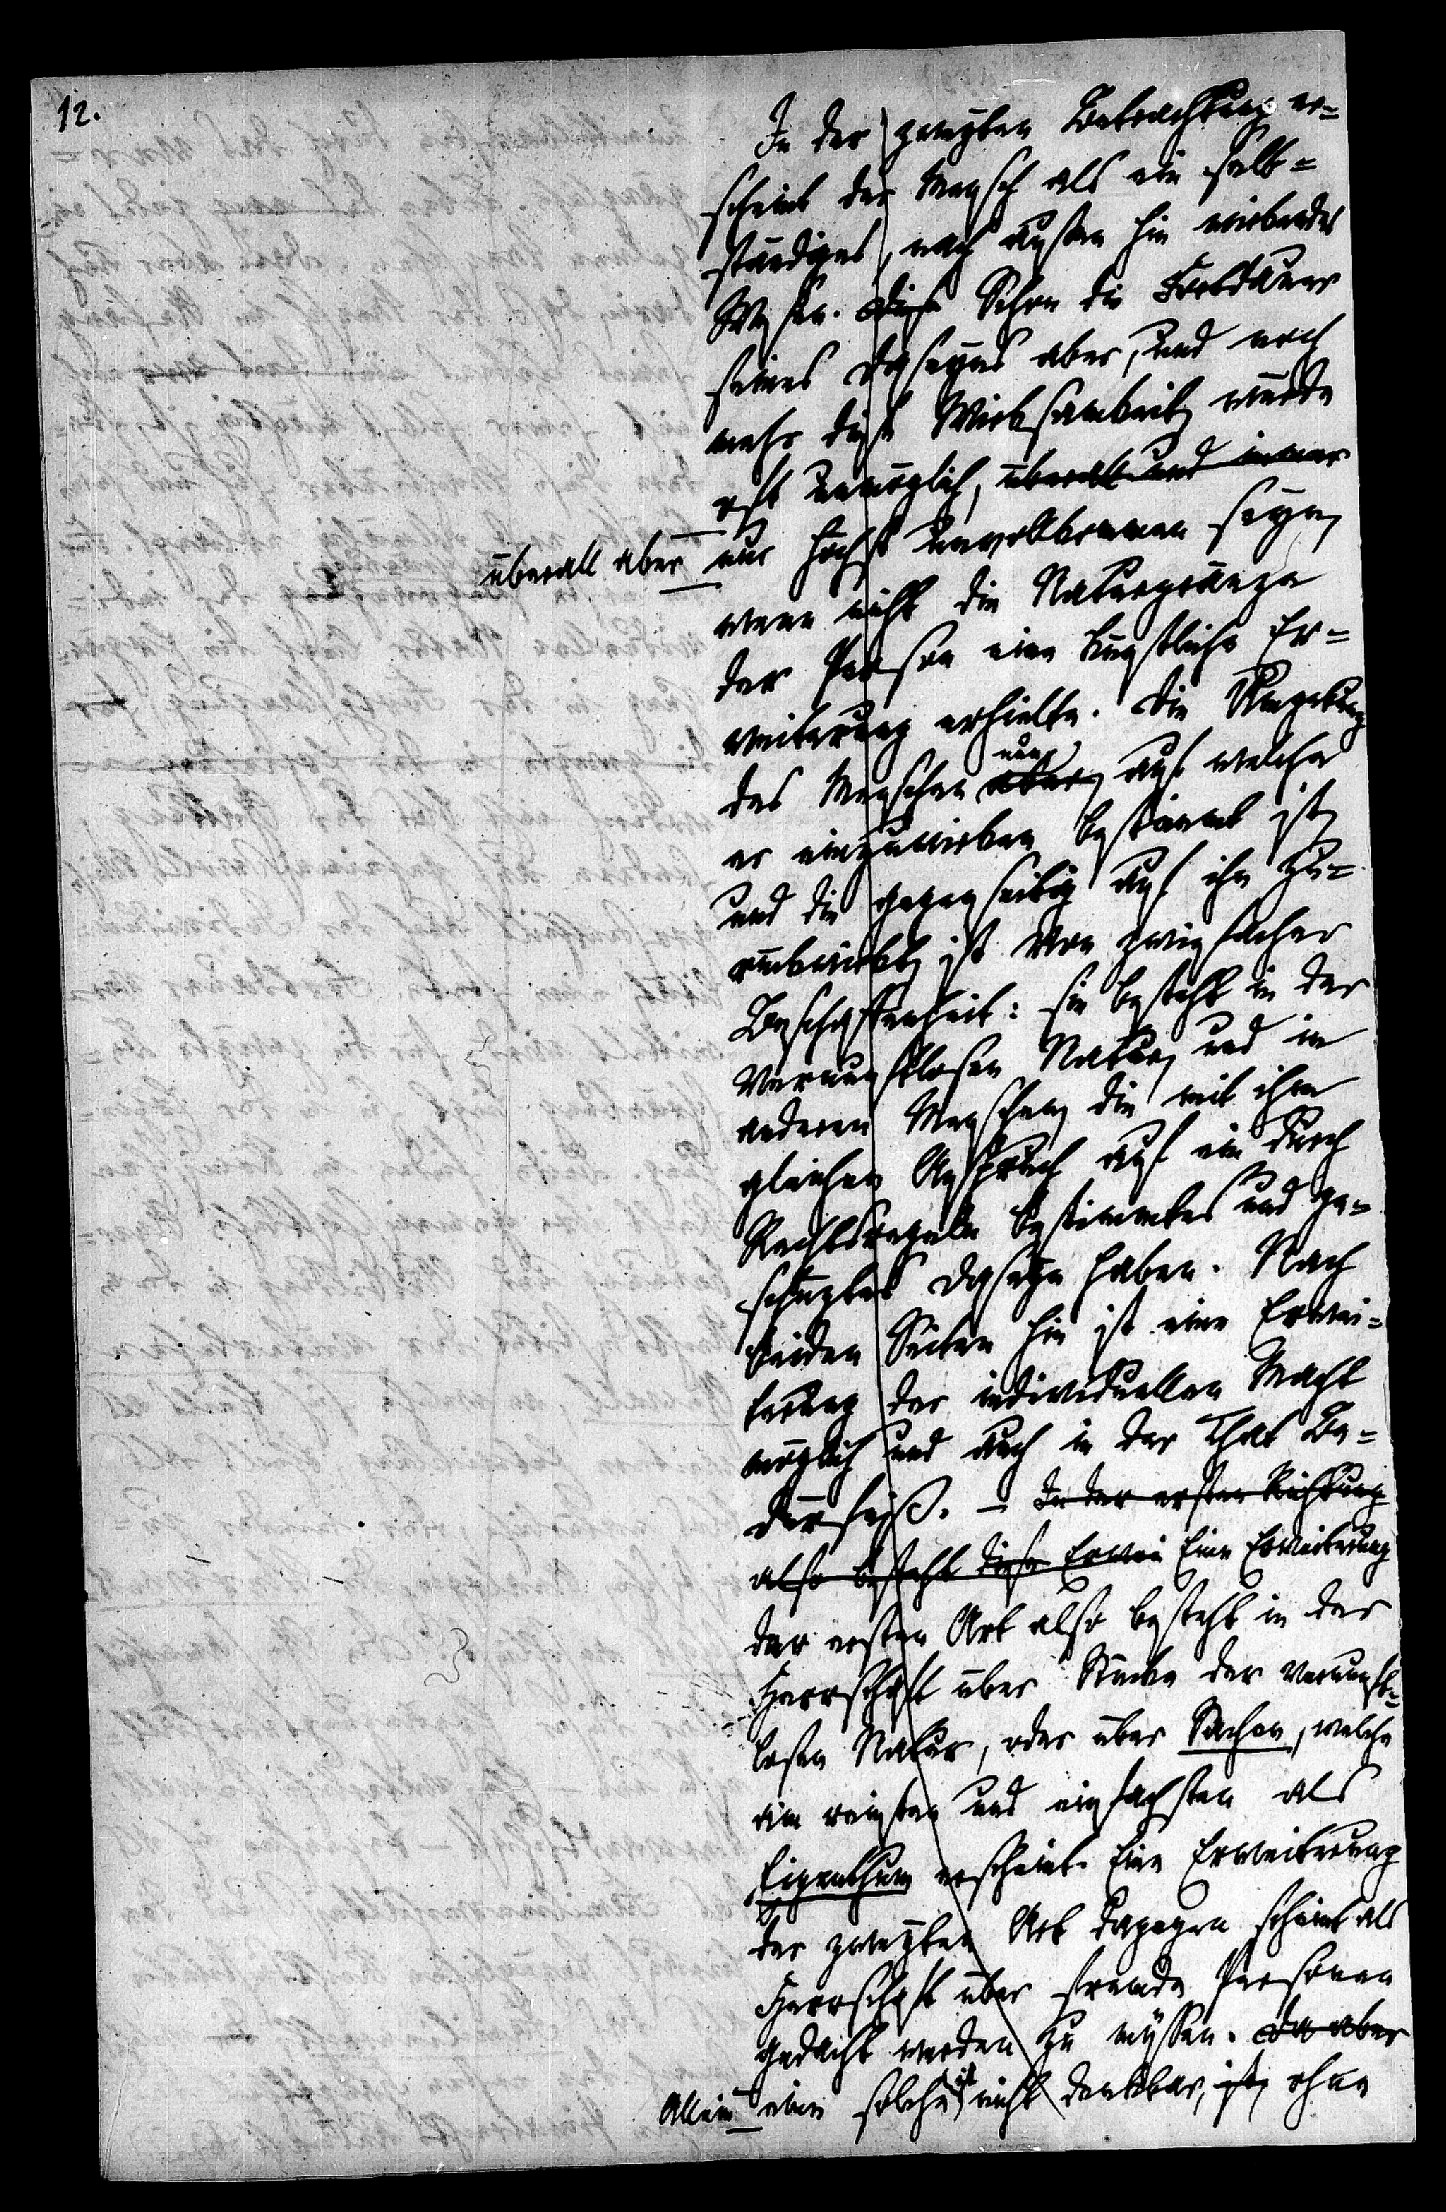 12.
In der zweyten Betrachtung er=
scheint der Mensch als ein selb=
ständiges, nach außen hin wirkendes
Wesen. Diese Schon die Fortdauer
seines Daseyns aber, und noch
mehr diese Wirksamkeit, würde
oft unmöglich, überall und immer
überall aber nur höchst unvollkommen seyn,
wenn nicht die Naturgränze
der Person eine künstliche Er=
weiterung erhielte. Die Umgebung
des Menschen aber, nun auf welche
er einzuwirken bestimmt ist,
und die gegenseitig auf ihn zu=
rückwirkt, ist von zwiefacher
Beschaffenheit: sie besteht in der
vernunftlosen Natur, und in
anderen Menschen, die mit ihm
gleichen Anspruch auf ein durch
Rechtsregeln bestimmtes und ge=
schütztes Daseyn haben. Nach
beiden Seiten hin ist eine Erwei=
terung der individuellen Macht
möglich und auch in der That Be=
dürfniß. – In der ersten Richtung
also besteht diese Erwei Eine Erweiterung
der ersten Art also besteht in der
Herrschaft über Stücke der vernunft=
losen Natur, oder über Sachen, welche
am reinsten und einfachsten als
Eigenthum erscheint. Eine Erweiterung
der zweyten Art dagegen scheint als
Herrschaft über fremde Personen
gedacht werden zu müssen. Da aber
Allein eine solche ist nicht denkbar, ist, ohne